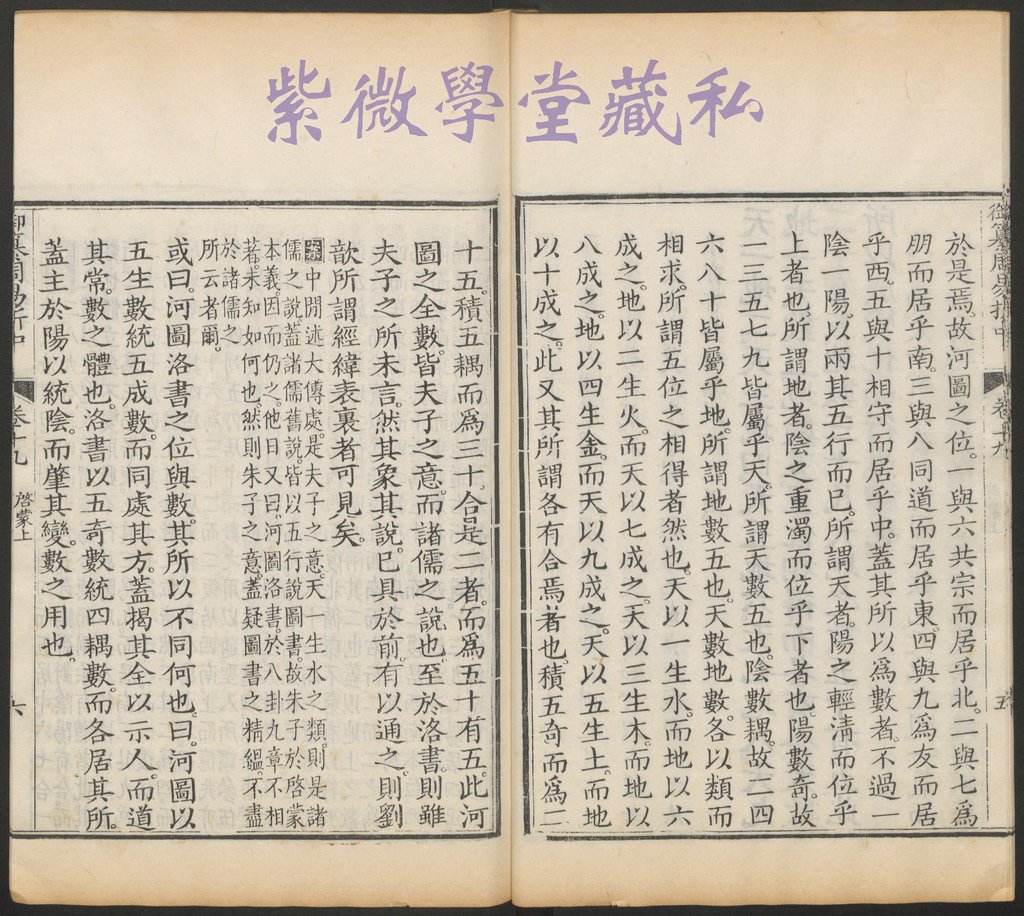 紫微學堂藏私
於是焉。故河圖之位。一與六共宗而居乎北。二與七爲
朋而居乎南。三與八同道而居乎東。四與九爲友而居
乎西。五與十相守而居乎中。蓋其所以爲數者。不過一
陰一陽。以兩其五行而已。所謂天者。陽之輕清而位乎
上者也。所謂地者。陰之重濁而位乎下者也。陽數奇。故
一三五七九皆屬乎天。所謂天數五也。陰數耦。故二四
六八十皆屬乎地。所謂地數五也。天數地數各以類而
相求。所謂五位之相得者然也。天以一生水。而地以六
成之。地以二生火。而天以七成之。天以三生木。而地以
八成之。地以四生金。而天以九成之。天以五生土。而地
以十成之。此又其所謂各有合焉者也。積五奇而爲二
十五。積五耦而爲三十。合是二者。而爲五十有五。此河
圖之全數。皆夫子之意。而諸儒之說也。至於洛書。則雖
夫子之所未言。然其象其說。已具於前。有以通之。則劉
歆所謂經緯表裏者可見矣。
案中間述大傳處。是夫子之意。天一生水之類。則是諸
儒之說。蓋諸儒舊說。皆以五行說圖書。故朱子於啓蒙
本義。因而仍之。他日又曰。河圖洛書。於八卦九章不相
著。未知如何也。然則朱子之意。蓋疑圖書之精緼。不盡
於諸儒之
所云者爾。
或曰。河圖洛書之位與數。其所以不同何也。曰。河圖以
五生數統五成數。而同處其方。蓋揭其全以示人。而道
其常。數之體也。洛書以五奇數統四耦數。而各居其所。
蓋主於陽以統陰。而肇其變。數之用也。
御纂周易折中 卷十九 啓蒙上 六